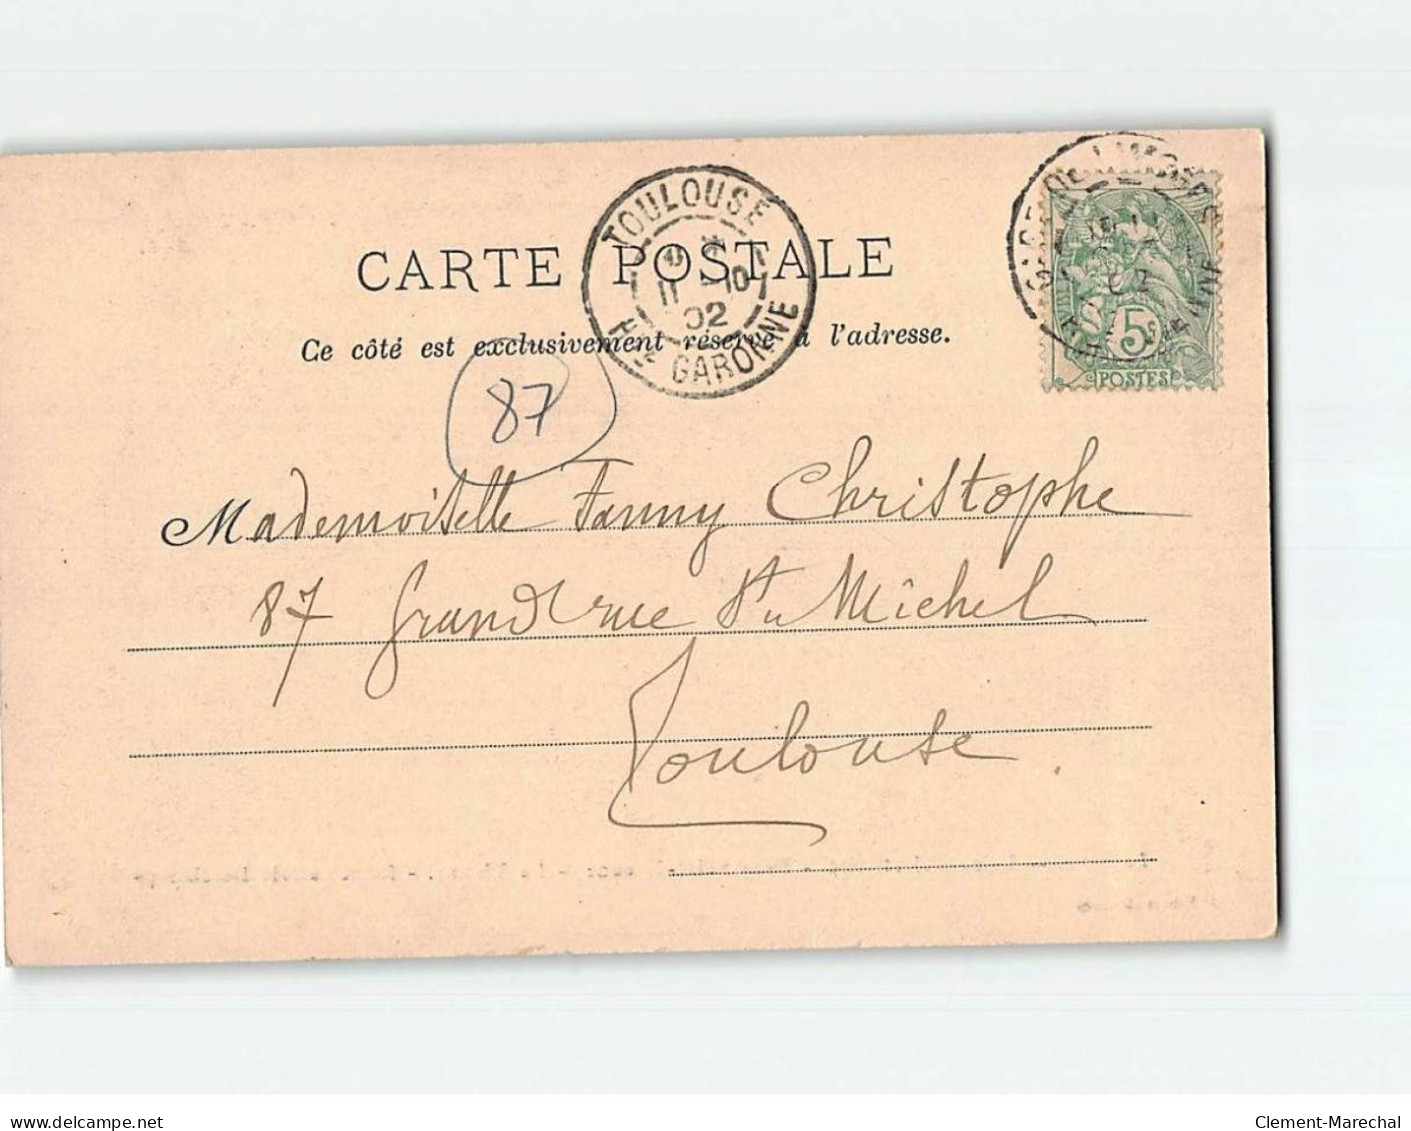 CARTE POSTALE
Ce côté est exclusivement réservé à l'adresse.
TOULOUSE
11 -10
02
Hte GARONNE
GARE DE LIMOGES
Hte VIENNE
5
POSTES
87
Mademoiselle Fanny Christophe
87 grand rue St Michel
Toulouse.
www.delcampe.net
Clement-Marechal